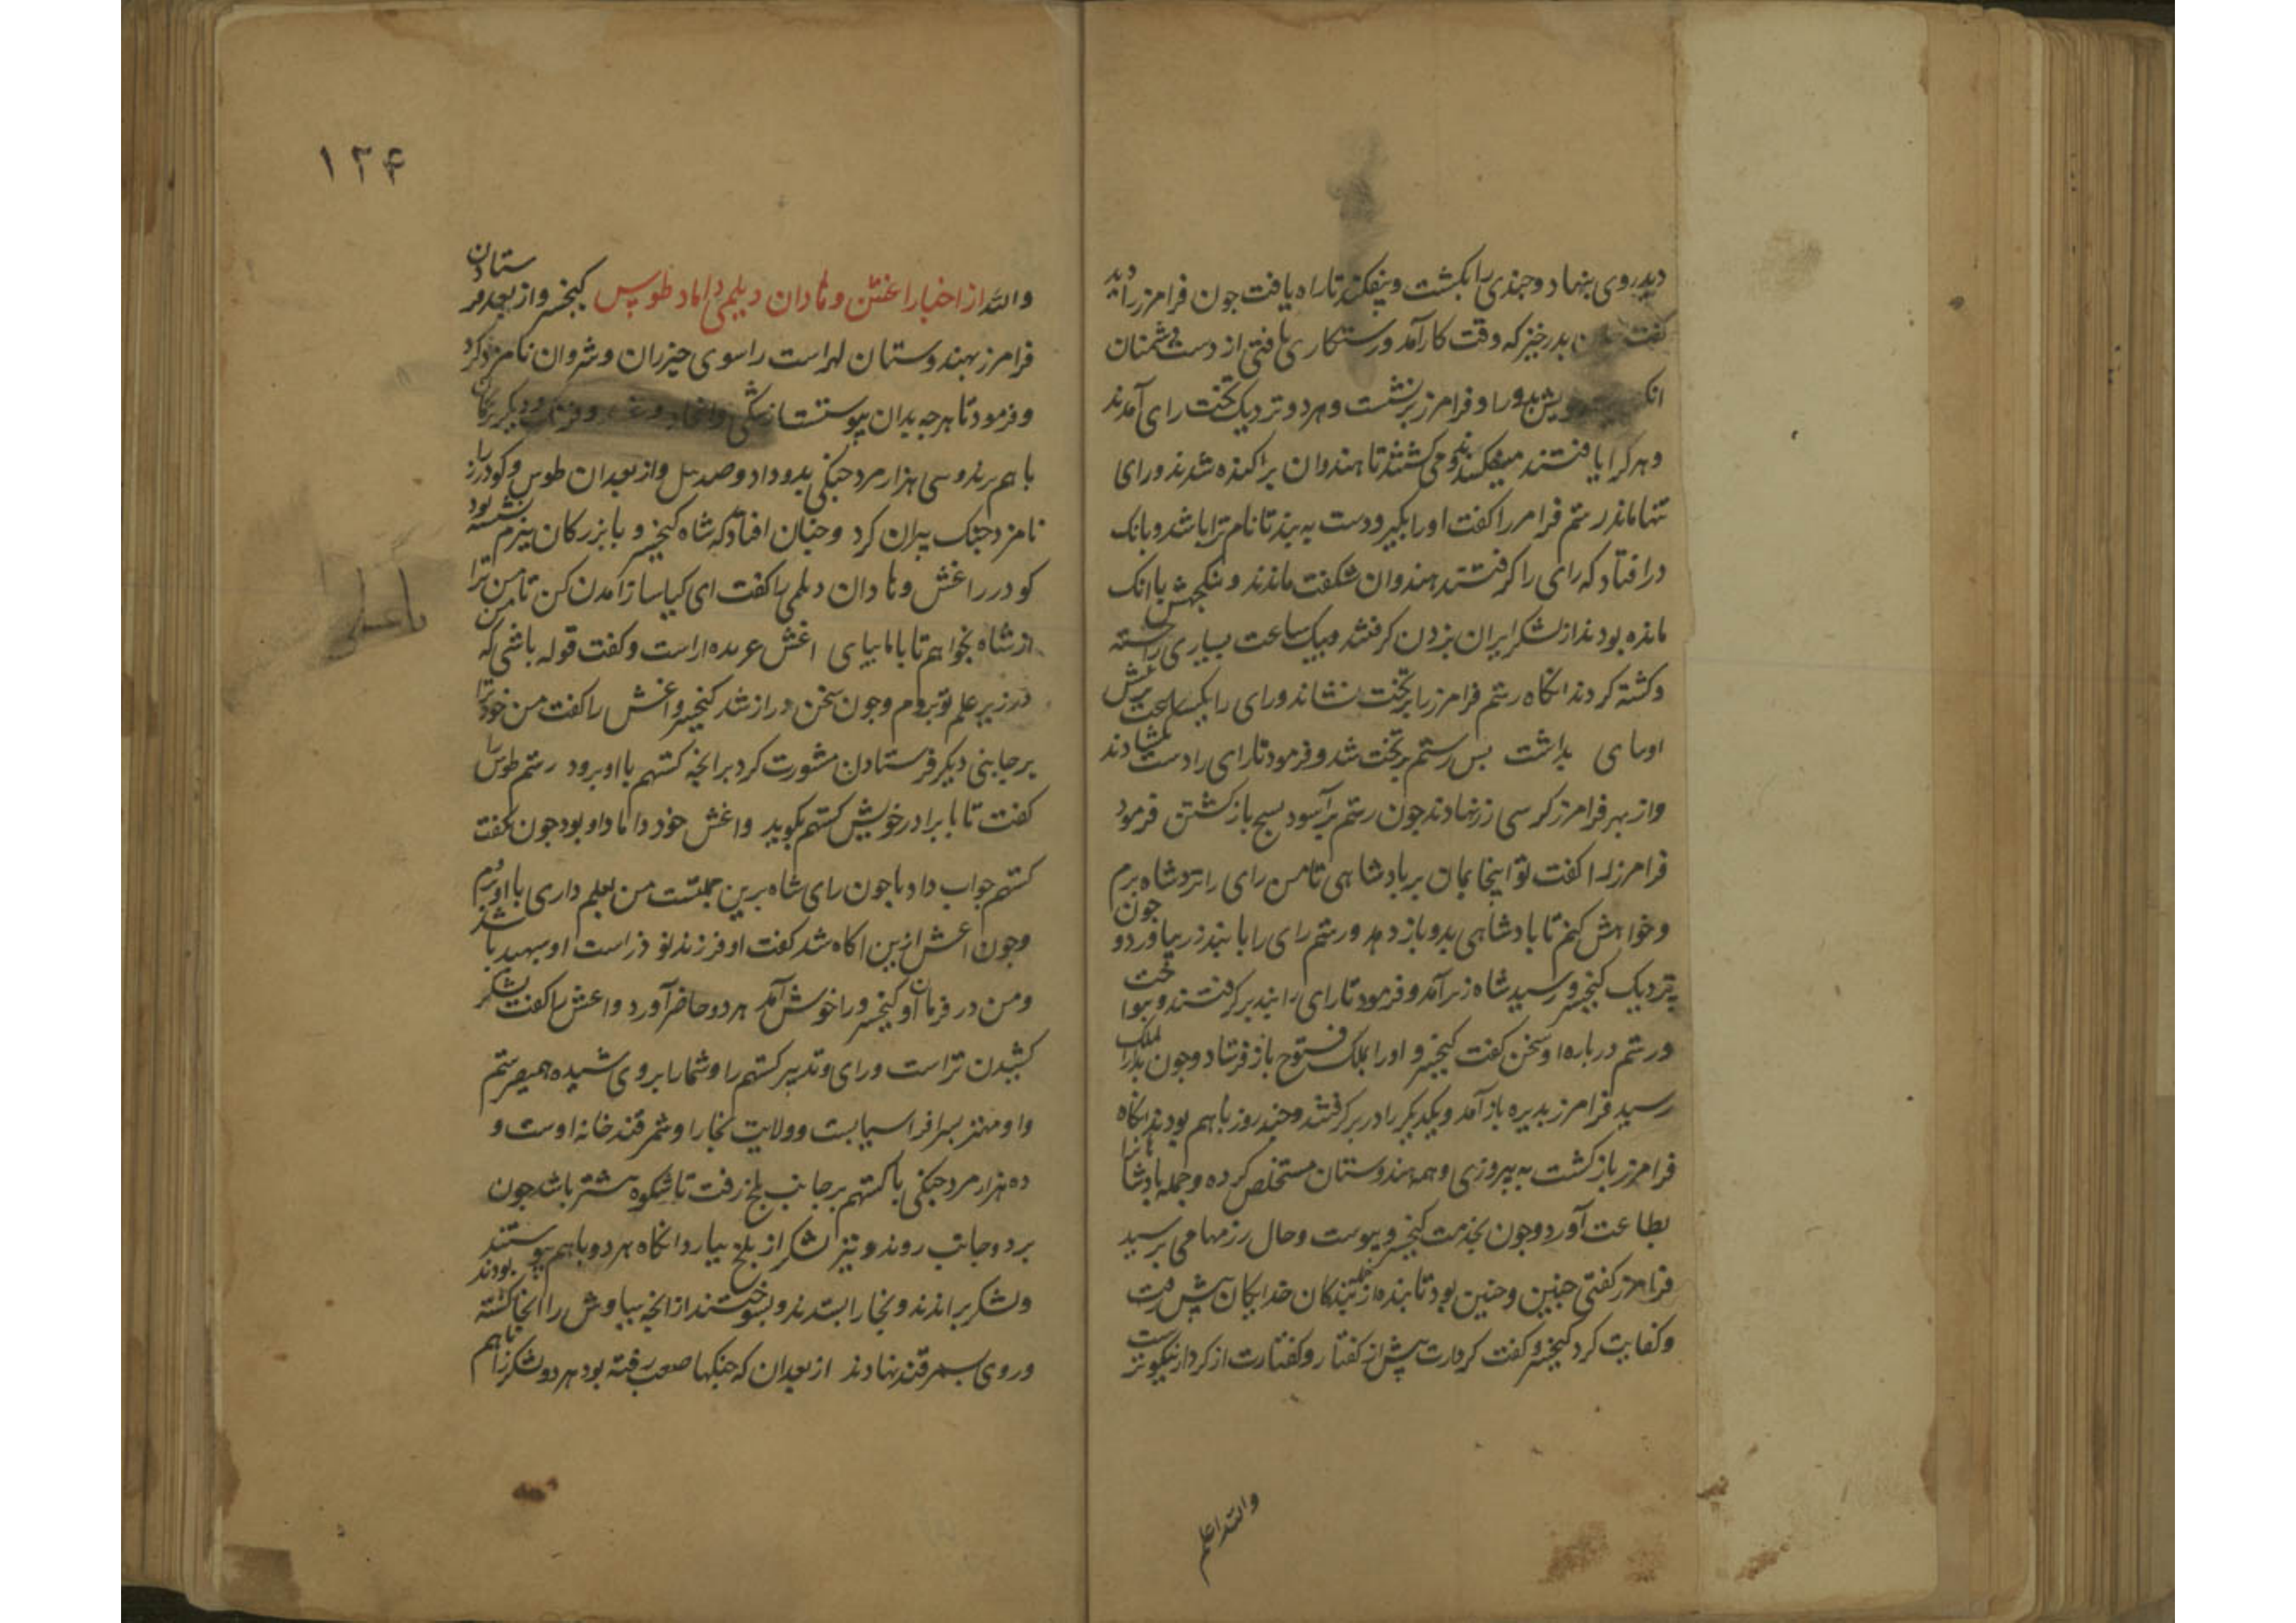 دید روی بنهاد و جندی را بکشت و بیفکند تا راه یافت جون فرامرز را دید
کفت بدر خیز که وقت کار آمد و رستکاری یافتی از دست دشمنان
و فرامرز برنشست و هر دو نزدیک تخت رای آمدند
و هر کرا یافتند میفکندند و می کشتند تا هندوان براکنده شدند و رای
تنها ماند رستم فرامرز را کفت او را بکیر و دست به بند تا نام ترا باشد و بانک
در افتاد که رای را کرفتند هندوان شکفت ماندند و بنکجهش با انک
مانده بودند از لشکر ایران بزدن کرفتند و بیک ساعت بسیاری را خسته
و کشته کردند انکاه رستم فرامرز را بر تخت نشاند و رای را یکساعت برش
او بپای بداشت بس رستم بر تخت شد و فرمود تا رای را دست بکشادند
و از بهر فرامرز کرسی زر نهادند جون رستم برآسود بسیج باز کشتن فرمود
فرامرز را کفت تو اینجا بمان بر بادشاهی تا من رای را نزد شاه برم
و خواهش کنم تا بادشاهی بدو باز دهد و رستم رای را با بند زر بیاورد و جون
نزدیک کیخسرو رسید شاه زیر آمد و فرمود تا رای را بند بر کرفتند و بنواخت
و رستم درباره او سخن کفت کیخسرو او را بملک فتوح باز فرستاد و جون بدان ملک
رسید فرامرز بدیره باز آمد و یکدیکر را در بر کرفتند و جند روز با هم بودند انکاه
فرامرز باز کشت به پیروزی و همه هندوستان مستخلص کرده و جمله بادشاهانرا
بطاعت آورد و جون بخدمت کیخسرو پیوست و حال رزمها می برسید
فرامرز کفتی جنین و جنین بود تا بنده از بندکان خدایکان پیش رفت
و کفایت کرد کیخسرو کفت کردارت پیش از کفتار و کفتارت از کردار نیکوترست
والله اعلم
۱۲۴
والله از اخبار اغش وهادان دیلمی داماد طوس کیخسرو از بعد فرستادن
فرامرز بهندوستان لهراست را سوی خزران و شروان نامزد کرد
و فرمود تا هر جه بدان پیوستست از و دیکر بزرکان
با هم برند و سی هزار مرد جنکی بدو داد و صد پیل و از بعد ان طوس و کودرز را
نامزد جنک پیران کرد و جنان افتاد که شاه کیخسرو با بزرکان ببزم نشسته بود
کودرز اغش وهادان دیلمی را کفت ای کیا ساز آمدن کن تا من ترا
از شاه بخواهم تا با ما بیای اغش عربده اراست و کفت تو که باشی که من
در زیر علم تو بروم و جون سخن دراز شد کیخسرو اغش را کفت من خود ترا
بر جانبی دیکر فرستادن مشورت کرد بر انجه کستهم با او برود رستم طوس را
کفت تا با برادر خویش کستهم بکوید و اغش خود داماد او بود جون بکفت
کستهم جواب داد با جون رای شاه برین جملتست من بعلم داری با او بروم
و جون اغش ازین اکاه شد کفت او فرزند نوذر است او سبهبد باشد
و من در فرمان او کیخسرو را خوش آمد هر دو حاضر آورد و اغش را کفت لشکر
کشیدن تراست و رای و تدبیر کستهم را و شما را بر روی شیده همی فرستم
و او مهتر بسر افراسیابست و ولایت بخارا و سمرقند خانه اوست و
ده هزار مرد جنکی با کستهم بر جانب بلخ رفت تا شکوه بیشتر باشد جون
بر دو جانب روند و نیز لشکر از بلخ بیارد انکاه هر دو با هم پیوستند
و لشکر براندند و بخارا بستدند و بسوختند از انجه سیاوش را انجا کشته بودند
و روی بسمرقند نهادند از بعد ان که جنکها صعب رفته بود هر دو لشکر را با هم